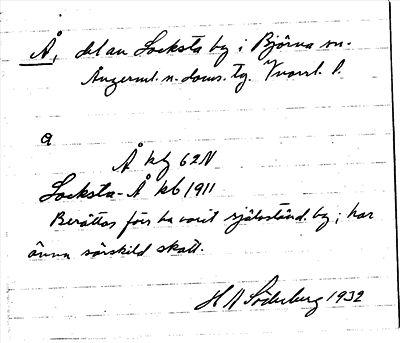 Å, del av Locksta by i Björna sn.
Ångerml. n. doms. tg. Vnorrl. l.
a
Å kbg 62N
Locksta-Å kb 1911
Berättas förr ha varit självständ. by; har
ännu särskild skatt.
H A Söderberg 1932